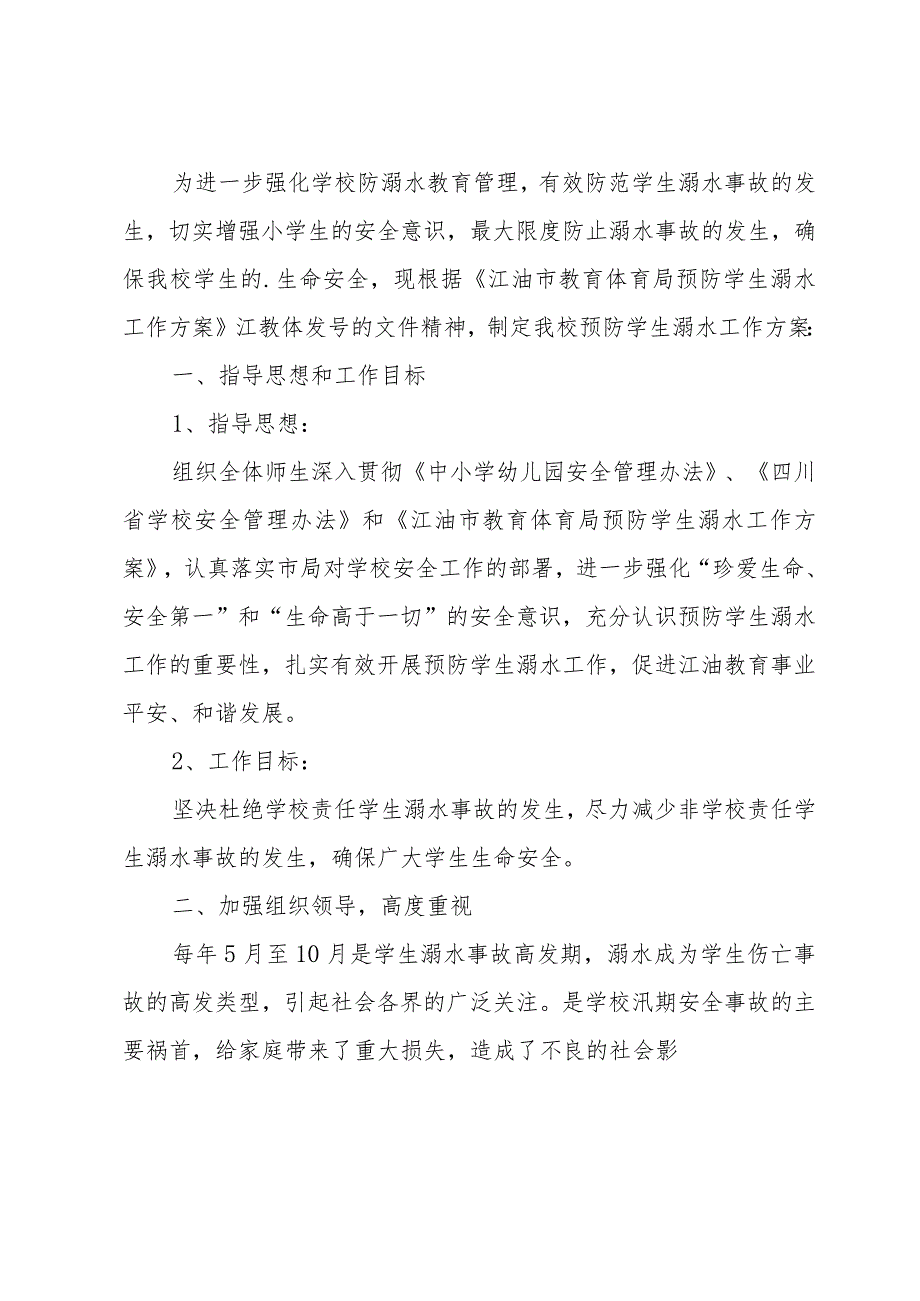 为进一步强化学校防溺水教育管理，有效防范学生溺水事故的发
生，切实增强小学生的安全意识，最大限度防止溺水事故的发生，确
保我校学生的.生命安全，现根据《江油市教育体育局预防学生溺水
工作方案》江教体发号的文件精神，制定我校预防学生溺水工作方案：
一、指导思想和工作目标
1、指导思想：
组织全体师生深入贯彻《中小学幼儿园安全管理办法》、《四川
省学校安全管理办法》和《江油市教育体育局预防学生溺水工作方
案》，认真落实市局对学校安全工作的部署，进一步强化“珍爱生命、
安全第一”和“生命高于一切”的安全意识，充分认识预防学生溺水
工作的重要性，扎实有效开展预防学生溺水工作，促进江油教育事业
平安、和谐发展。
2、工作目标：
坚决杜绝学校责任学生溺水事故的发生，尽力减少非学校责任学
生溺水事故的发生，确保广大学生生命安全。
二、加强组织领导，高度重视
每年5月至10月是学生溺水事故高发期，溺水成为学生伤亡事
故的高发类型，引起社会各界的广泛关注。是学校汛期安全事故的主
要祸首，给家庭带来了重大损失，造成了不良的社会影